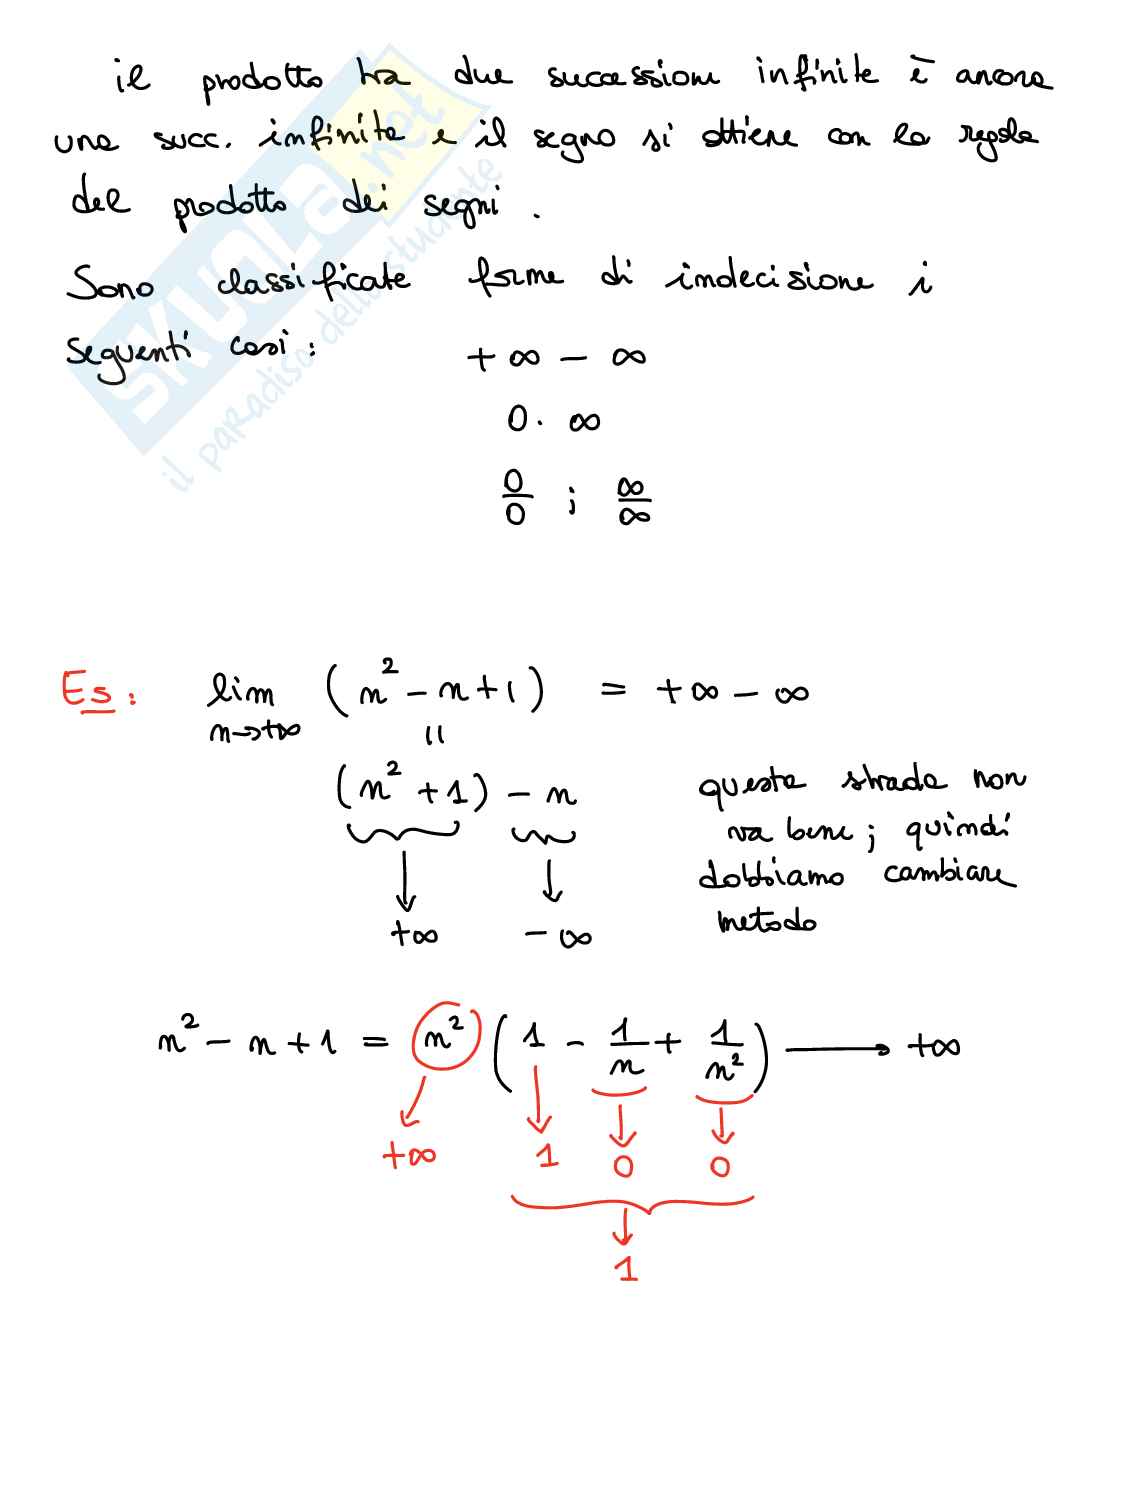 il prodotto tra due successioni infinite è ancora
una succ. infinita e il segno si ottiene con la regola
del prodotto dei segni.
Sono classificate forme di indecisione i
seguenti casi: +∞ - ∞
0 · ∞
0/0 ; ∞/∞
Es: lim n→+∞ (n² - n + 1) = +∞ - ∞
=
(n² + 1) - n
+∞ -∞
questa strada non
va bene; quindi
dobbiamo cambiare
metodo
n² - n + 1 = n² (1 - 1/n + 1/n²) → +∞
+∞ 1 0 0
1
SKUOLA.net
il paradiso dello studente